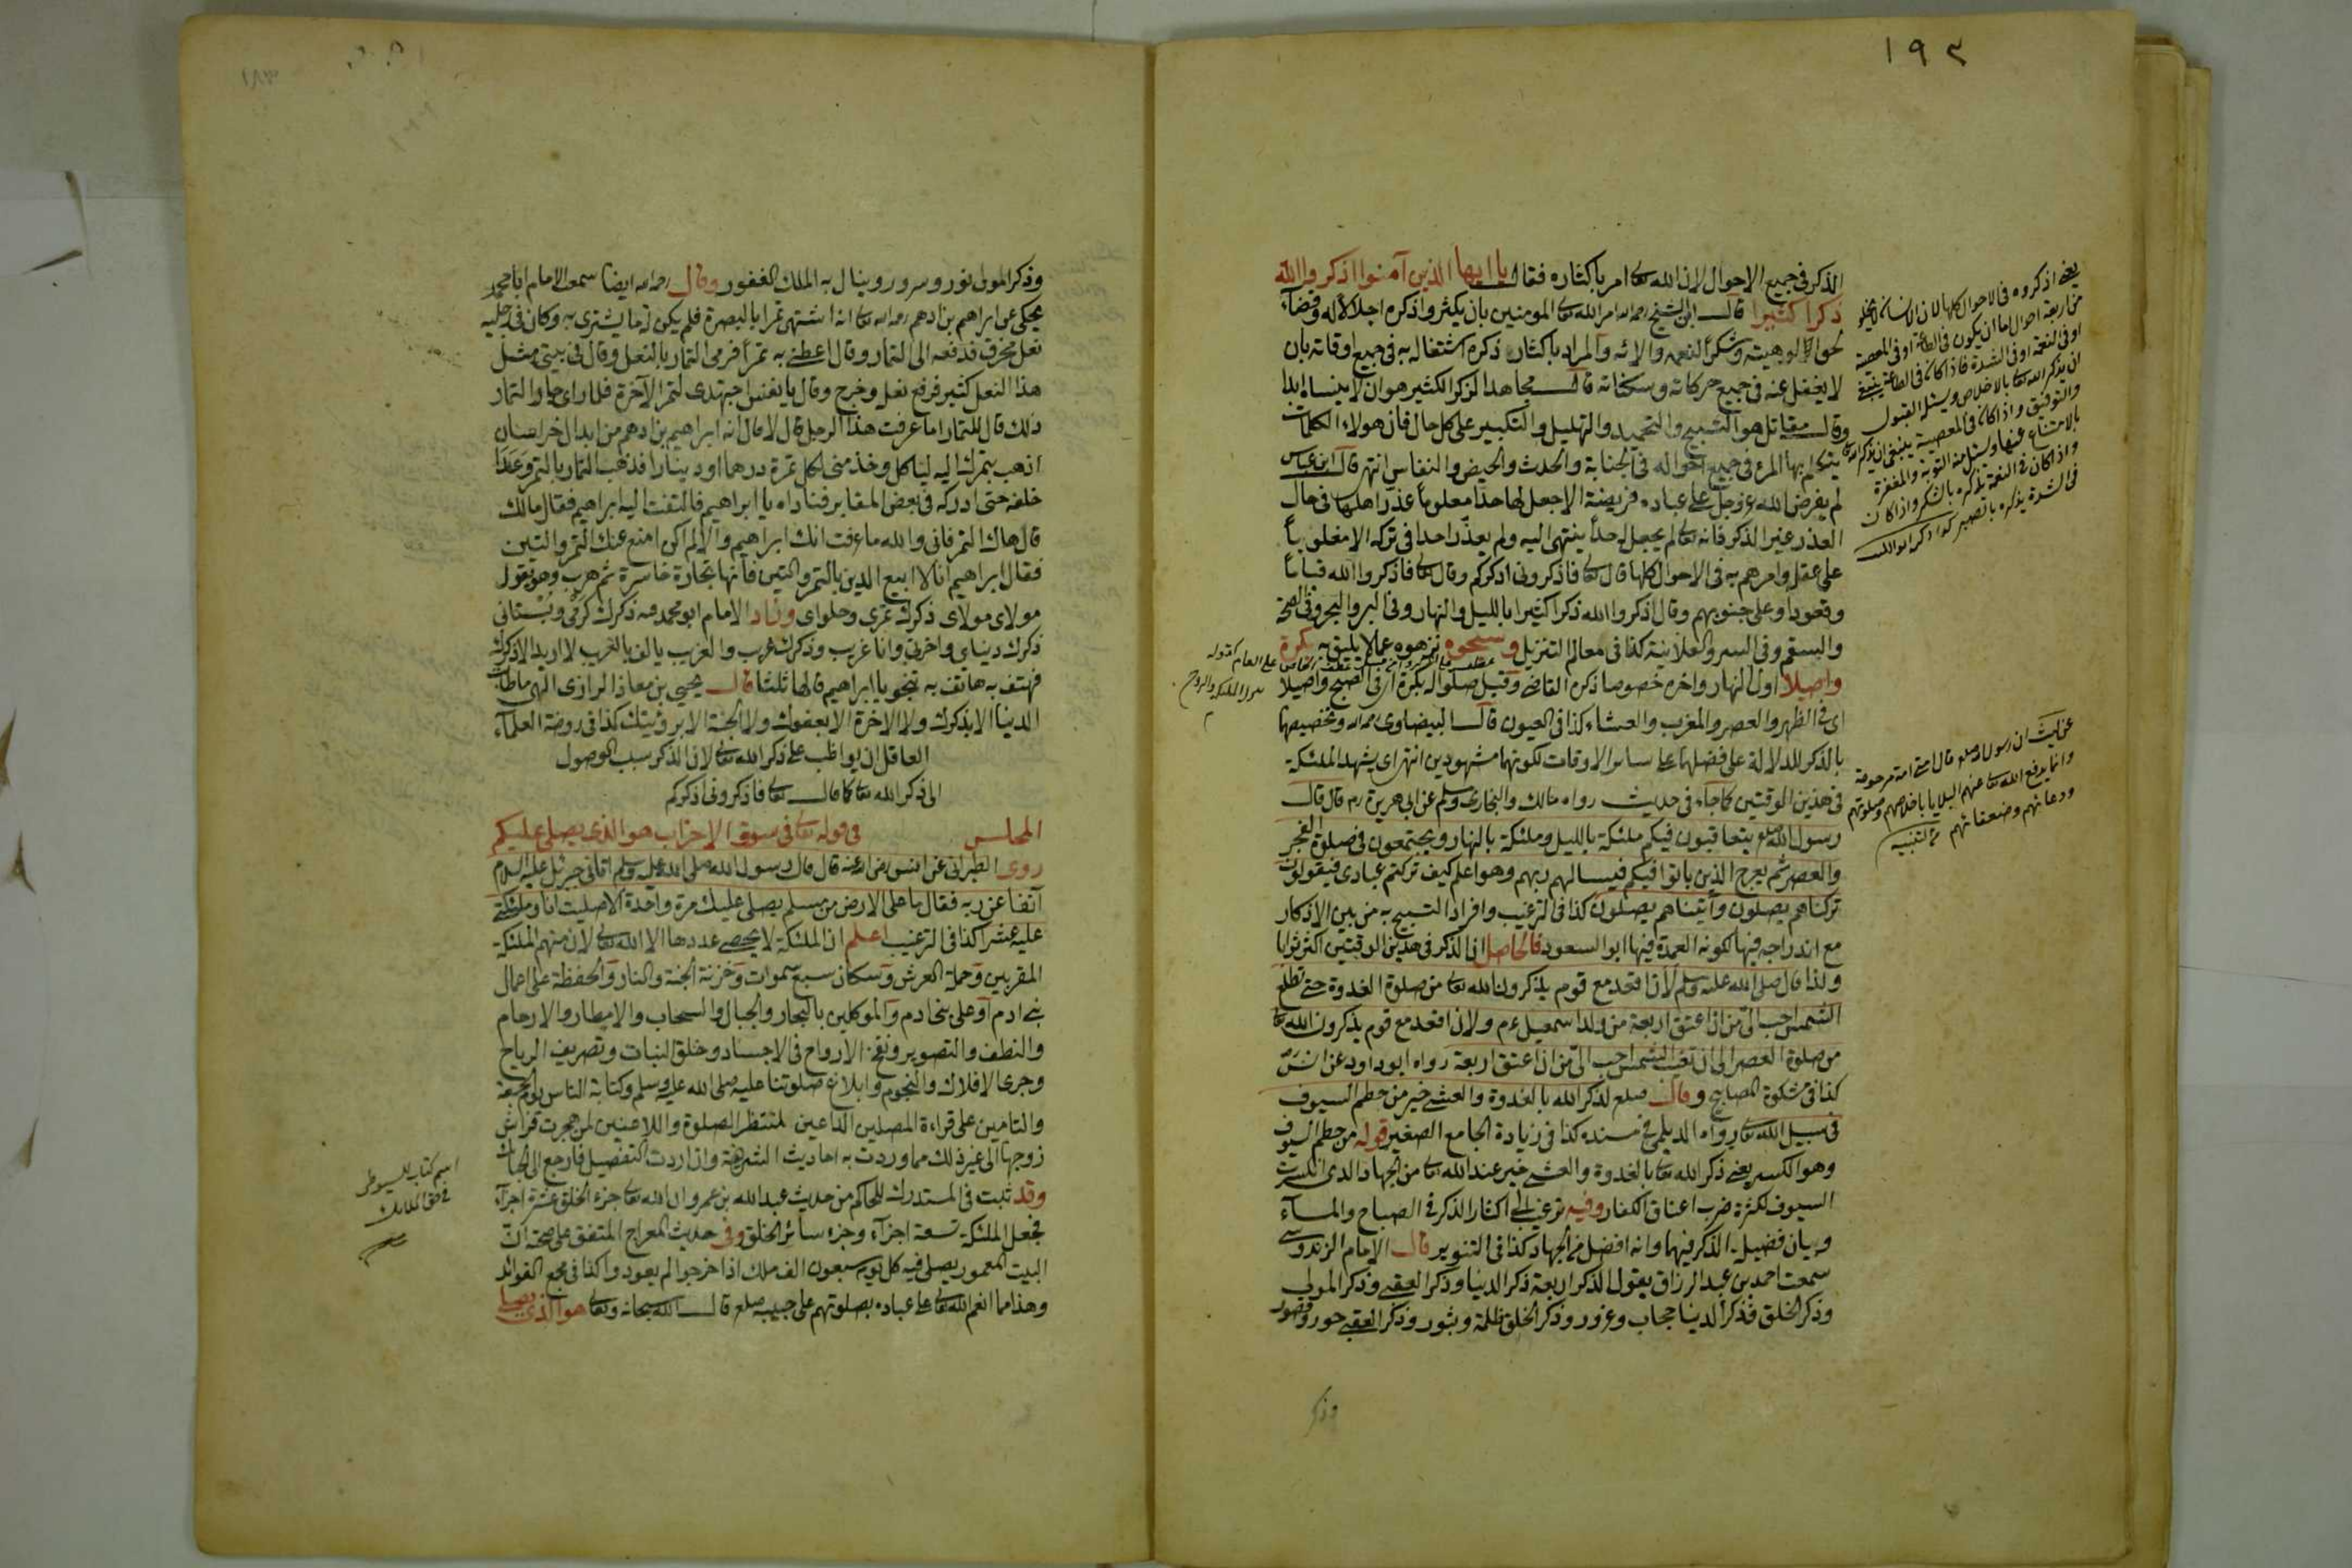 ١٩٣
الذكر في جميع الاحوال لان الله تعالى امر باكثاره فقال يا ايها الذين آمنوا اذكروا الله
ذكرا كثيرا قال ابن الشيخ رحمه الله امر الله تعالى المومنين بان يكثروا ذكره اجلالا له وقضاء
لحق الوهيته وشكرا لنعمه والائه والمراد باكثار ذكره اشتغاله به في جميع اوقاته بان
لا يغفل عنه في جميع حركاته وسكناته قال مجاهد الذكر الكثير هو ان لا ينساه ابدا
وقال مقاتل هو التسبيح والتحميد والتهليل والتكبير على كل حال فان هولاء الكلمات
يتكلم بها المرء في جميع احواله في الجنابة والحدث والحيض والنفاس انتهى قال ابن عباس
لم يفرض الله عز وجل على عباده فريضة الا جعل لها حدا معلوما عذر اهلها في حال
العذر غير الذكر فانه تعالى لم يجعل له حدا ينتهى اليه ولم يعذر احدا في تركه الا مغلوبا
على عقله وامرهم به في الاحوال كلها قال تعالى فاذكروني اذكركم وقال تعالى فاذكروا الله قياما
وقعودا وعلى جنوبهم وقال اذكروا الله ذكرا كثيرا بالليل والنهار وفي البر والبحر وفي الصحة
والسقم وفي السر والعلانية كذا في معالم التنزيل وسبحوه نزهوه عما لا يليق به بكرة
واصيلا اول النهار واخره خصوصا ذكره القاضي وقيل صلوا له بكرة اي في الصبح واصيلا
اي في الظهر والعصر والمغرب والعشاء كذا في العيون قال البيضاوى رحمه الله وتخصيصهما
بالذكر للدلالة على فضلهما على سائر الاوقات لكونهما مشهودين انتهى اي يشهد الملئكة
في هذين الوقتين كما جاء في حديث رواه مالك والبخارى ومسلم عن ابي هريرة رم قال قال
رسول الله صلعم يتعاقبون فيكم ملئكة بالليل وملئكة بالنهار ويجتمعون في صلوة الفجر
والعصر ثم يعرج الذين باتوا فيكم فيسالهم ربهم وهو اعلم كيف تركتم عبادى فيقولون
تركناهم يصلون وآتيناهم يصلون كذا في الترغيب وافراد التسبيح به من بين الاذكار
مع اندراجه فيها لكونه العمدة فيها ابو السعود فالحاصل ان الذكر في هذين الوقتين اكثر ثوابا
ولذا قال صلى الله عليه وسلم لان اقعد مع قوم يذكرون الله تعالى من صلوة الغدوة حتى تطلع
الشمس احب الي من ان اعتق اربعة من ولد اسمعيل عم ولان اقعد مع قوم يذكرون الله تعالى
من صلوة العصر الى ان تغيب الشمس احب الي من ان اعتق اربعة رواه ابو داود عن انس رض
كذا في مشكوة المصابيح وقال صلعم لذكر الله بالغدوة والعشي خير من حطم السيوف
في سبيل الله تعالى رواه الديلمي في مسنده كذا في زيادة الجامع الصغير قوله من حطم السيوف
وهو الكسر يعني ذكر الله تعالى بالغدوة والعشي خير عند الله تعالى من الجهاد الذى انكسرت
السيوف لكثرة ضرب اعناق الكفار وفيه ترغيب الى اكثار الذكر في الصباح والمساء
وبيان فضيلة الذكر فيهما وانه افضل من الجهاد كذا في التنوير قال الامام الزندوستي
سمعت احمد بن عبد الرزاق يقول الذكر اربعة ذكر الدنيا وذكر العقبى وذكر المولى
وذكر الخلق فذكر الدنيا حجاب وغرور وذكر الخلق ظلمة وبثور وذكر العقبى حور وقصور
وذكر
يعني اذكروه في الاحوال كلها لان الانسان لا يخلو
من اربعة احوال اما ان يكون في الطاعة او في المعصية
او في النعمة او في الشدة فاذا كان في الطاعة ينبغي
ان يذكر الله تعالى بالاخلاص ويسئل القبول
والتوفيق واذا كان في المعصية ينبغي ان يذكر الله تعالى
بالامتناع عنها ويسئل منه التوبة والمغفرة
واذا كان في النعمة يذكره بالشكر واذا كان
في الشدة يذكره بالصبر
على العام كقوله
الملئكة والروح
ان رسول الله صلعم قال امتي امة مرحومة
وانما يدفع الله تعالى عنهم البلايا باخلاصهم وصلوتهم
ودعائهم وضعفائهم تنبيه
١٨٣
وذكر المولى نور وسرور وينال به الملك الغفور وقال رحمه الله ايضا سمعت الامام ابا محمد
يحكى عن ابراهيم بن ادهم رحمه الله تعالى انه اشتهى تمرا بالبصرة فلم يكن له ما يشترى به وكان في رجليه
نعل مخرق فدفعه الى التمار وقال اعطني به تمرا فرمى التمار بالنعل وقال لى في بيتي مثل
هذا النعل كثير فرفع نعله وخرج وقال يا نفس اجتهدى لتمر الآخرة فلما راى جار التمار
ذلك قال للتمار اما عرفت هذا الرجل قال لا قال انه ابراهيم بن ادهم من ابدال خراسان
اذهب بتمرك اليه لياكل وخذ مني لكل تمرة درهما او دينارا فذهب التمار بالتمر وعدا
خلفه حتى ادركه في بعض المقابر فناداه يا ابراهيم فالتفت اليه ابراهيم فقال مالك
قال هاك التمر فاني والله ما عرفت انك ابراهيم والا لم اكن امنع عنك التمر والتين
فقال ابراهيم انا لا ابيع الدين بالتمر والتين فانها تجارة خاسرة ثم هرب وهو يقول
مولاى مولاى ذكرك تمرى وحلواى وزاد الامام ابو محمد فيه ذكرك كرمى وبستانى
ذكرك دنياى واخرتى وانا غريب وذكرك غريب والغريب يالف بالغريب لا اريد الا ذكرك
فهتف به هاتف به نجوت يا ابراهيم قالها ثلثا قال يحيى بن معاذ الرازى الهى ما طابت
الدنيا الا بذكرك ولا الاخرة الا بعفوك ولا الجنة الا برؤيتك كذا في روضة العلماء
العاقل ان يواظب على ذكر الله تعالى لان الذكر سبب الوصول
الى ذكر الله تعالى كما قال تعالى فاذكروني اذكركم
المجلس في قوله تعالى في سورة الاحزاب هو الذى يصلى عليكم
روى الطبرانى عن انس رضى الله عنه قال قال رسول الله صلى الله عليه وسلم اتانى جبرئيل عليه السلام
آنفا عن ربه فقال ما على الارض من مسلم يصلى عليك مرة واحدة الا صليت انا وملئكتى
عليه عشرا كذا في الترغيب اعلم ان الملئكة لا يحصى عددها الا الله تعالى لان منهم الملئكة
المقربين وحملة العرش وسكان سبع سموات وخزنة الجنة والنار والحفظة على اعمال
بنى ادم او على بنى ادم والموكلين بالبحار والجبال والسحاب والامطار والارحام
والنطف والتصوير ونفخ الارواح في الاجساد وخلق النبات وتصريف الرياح
وجرى الافلاك والنجوم وابلاغ صلوتنا عليه صلى الله عليه وسلم وكتابة الناس يوم الجمعة
والتامين على قراءة المصلين الداعين لمنتظر الصلوة واللاعنين لمن هجرت فراش
زوجها الى غير ذلك مما وردت به احاديث الشريفة وان اردت التفصيل فارجع الى
وقد ثبت في المستدرك للحاكم من حديث عبد الله بن عمرو ان الله تعالى جزء الخلق عشرة اجزاء
فجعل الملئكة تسعة اجزاء وجزء سائر الخلق وفى حديث المعراج المتفق على صحته ان
البيت المعمور يصلى فيه كل يوم سبعون الف ملك اذا خرجوا لم يعودوا كذا في مجمع الفوائد
وهذا مما انعم الله تعالى على عباده بصلوتهم على حبيبه صلعم قال الله سبحانه وتعالى هو الذى يصلى
اسم كتاب للسيوطى
في حق الملائك